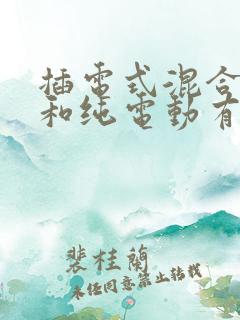 插電式混合
和纯電動有
裴桂蘭
未经同意禁止转载